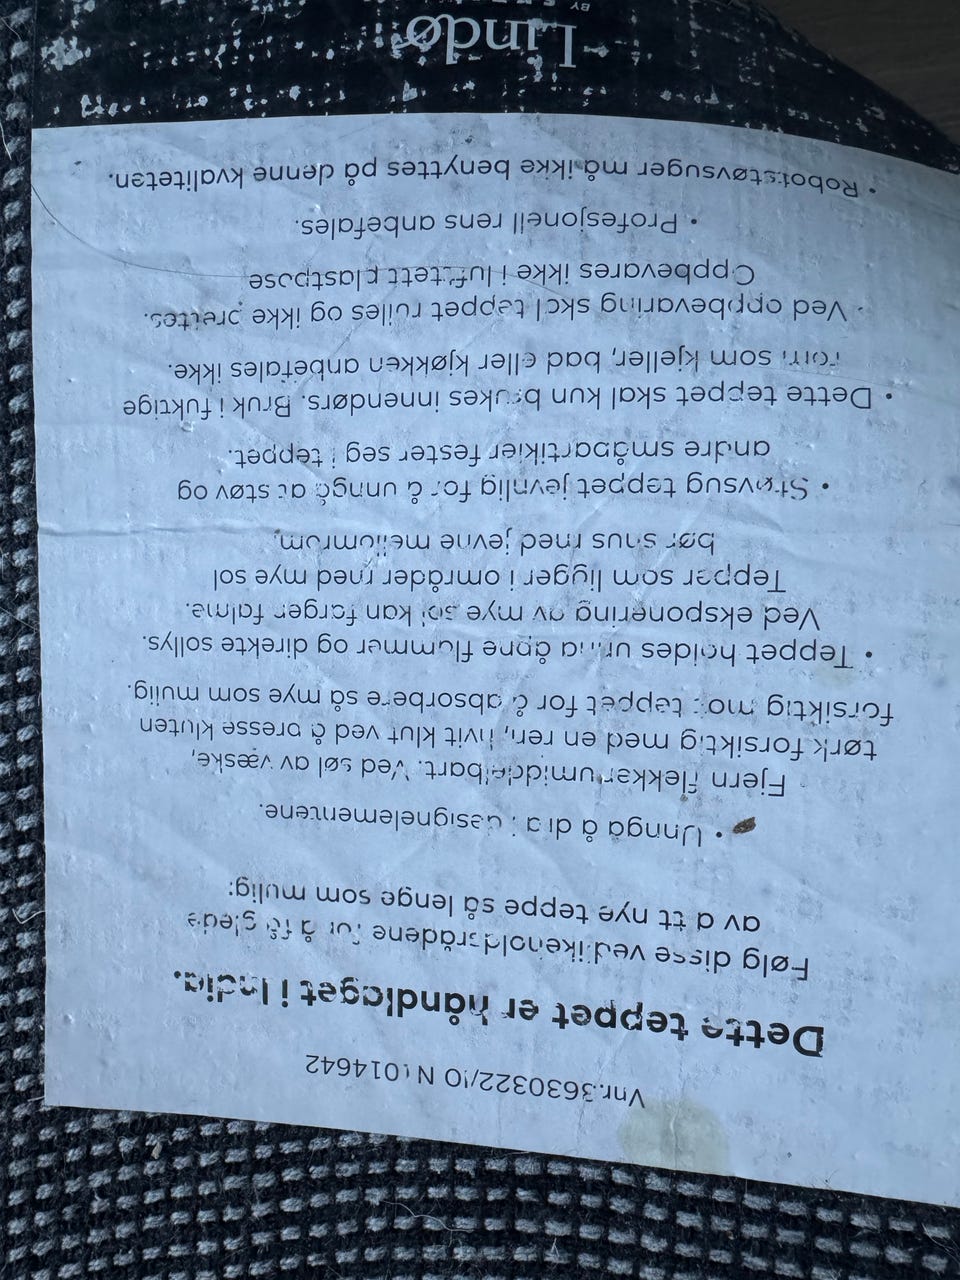 Vnr.3630322/IO N 014642
Dette teppet er håndlaget i India.
Følg disse vedlikeholdsrådene for å få glede
av d tt nye teppe så lenge som mulig:
• Unngå å dra i designelementene.
Fjern flekker umiddelbart. Ved søl av væske,
tørk forsiktig med en ren, hvit klut ved å presse kluten
forsiktig mot teppet for å absorbere så mye som mulig.
• Teppet holdes unna åpne flammer og direkte sollys.
Ved eksponering av mye sol kan farger falme.
Tepper som ligger i områder med mye sol
bør snus med jevne mellomrom,
• Støvsug teppet jevnlig for å unngå at støv og
andre småpartikler fester seg i teppet.
• Dette teppet skal kun brukes innendørs. Bruk i fuktige
rom som kjeller, bad eller kjøkken anbefales ikke.
• Ved oppbevaring skal teppet rulles og ikke brettes.
Oppbevares ikke i lufttett plastpose
• Profesjonell rens anbefales.
• Robotstøvsuger må ikke benyttes på denne kvaliteten.
Lindø
BY